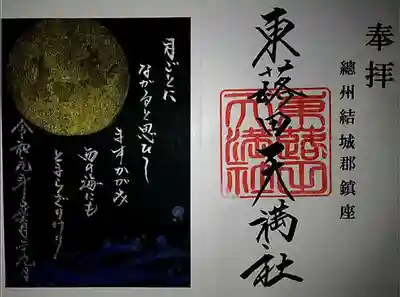 奉拝
總州結城郡鎮座
東蕗田天満社
東蕗田
天満社
月ごとに
ながると思ひし
ますかがみ
西の海にも
とまらざりけり
令和元年葉月